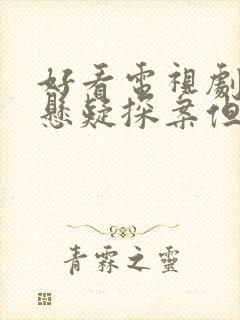 好看電視劇
懸疑探案但
青霖之靈